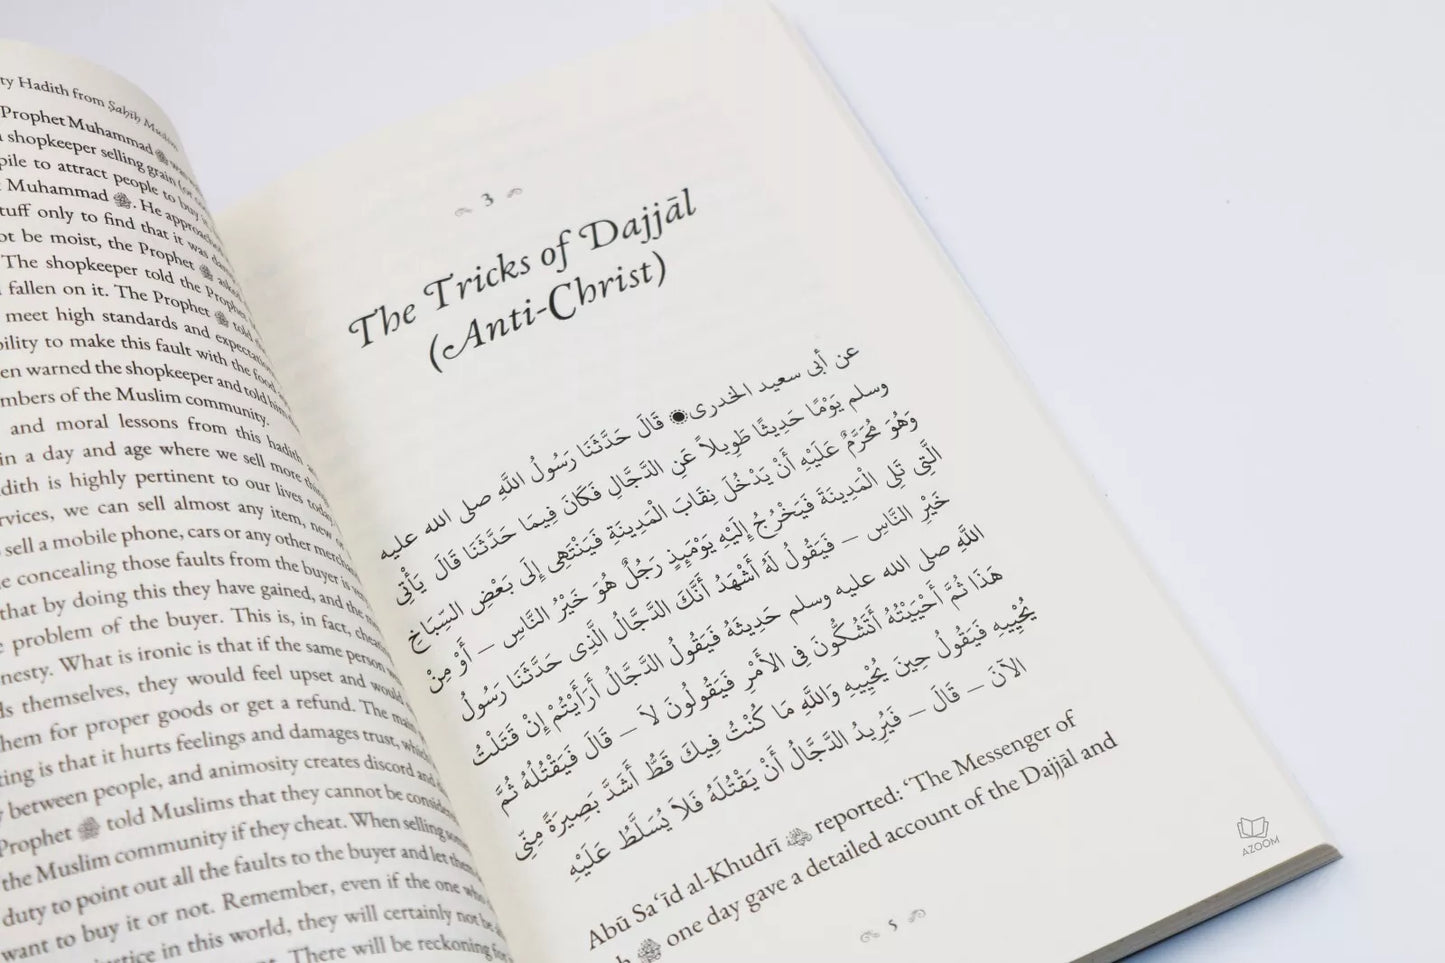 ty Hadith from Ṣaḥīḥ Muslim
Prophet Muhammad ﷺ
shopkeeper selling grain
pile to attract people to buy
Muhammad ﷺ. He approached
tuff only to find that it was
ot be moist, the Prophet ﷺ
The shopkeeper told the Prophet
fallen on it. The Prophet ﷺ told
meet high standards and
bility to make this fault with the food
en warned the shopkeeper and told him
mbers of the Muslim community.
and moral lessons from this hadith
in a day and age where we sell more things
dith is highly pertinent to our lives today
rvices, we can sell almost any item, new
sell a mobile phone, cars or any other
e concealing those faults from the buyer is
that by doing this they have gained, and the
e problem of the buyer. This is, in fact,
nesty. What is ironic is that if the same person
ds themselves, they would feel upset and would
hem for proper goods or get a refund. The
ting is that it hurts feelings and damages trust,
y between people, and animosity creates discord and
Prophet ﷺ told Muslims that they cannot be
the Muslim community if they cheat. When selling
duty to point out all the faults to the buyer and let
want to buy it or not. Remember, even if the one
in this world, they will certainly not be
There will be reckoning
3
The Tricks of Dajjāl
(Anti-Christ)
عن أبى سعيد الخدرى قَالَ حَدَّثَنَا رَسُولُ اللَّهِ صلى الله عليه
وسلم يَوْمًا حَدِيثًا طَوِيلاً عَنِ الدَّجَّالِ فَكَانَ فِيمَا حَدَّثَنَا قَالَ يَأْتِى
وَهُوَ مُحَرَّمٌ عَلَيْهِ أَنْ يَدْخُلَ نِقَابَ الْمَدِينَةِ فَيَنْتَهِى إِلَى بَعْضِ السِّبَاخِ
الَّتِى تَلِى الْمَدِينَةَ فَيَخْرُجُ إِلَيْهِ يَوْمَئِذٍ رَجُلٌ هُوَ خَيْرُ النَّاسِ – أَوْ مِنْ
خَيْرِ النَّاسِ – فَيَقُولُ لَهُ أَشْهَدُ أَنَّكَ الدَّجَّالُ الَّذِى حَدَّثَنَا رَسُولُ
اللَّهِ صلى الله عليه وسلم حَدِيثَهُ فَيَقُولُ الدَّجَّالُ أَرَأَيْتُمْ إِنْ قَتَلْتُ
هَذَا ثُمَّ أَحْيَيْتُهُ أَتَشُكُّونَ فِى الأَمْرِ فَيَقُولُونَ لاَ – قَالَ فَيَقْتُلُهُ ثُمَّ
يُحْيِيهِ فَيَقُولُ حِينَ يُحْيِيهِ وَاللَّهِ مَا كُنْتُ فِيكَ قَطُّ أَشَدَّ بَصِيرَةً مِنِّى
الآنَ – قَالَ – فَيُرِيدُ الدَّجَّالُ أَنْ يَقْتُلَهُ فَلاَ يُسَلَّطُ عَلَيْهِ
Abū Saʿīd al-Khudrī reported: ‘The Messenger of
h ﷺ one day gave a detailed account of the Dajjāl and
5
AZOOM